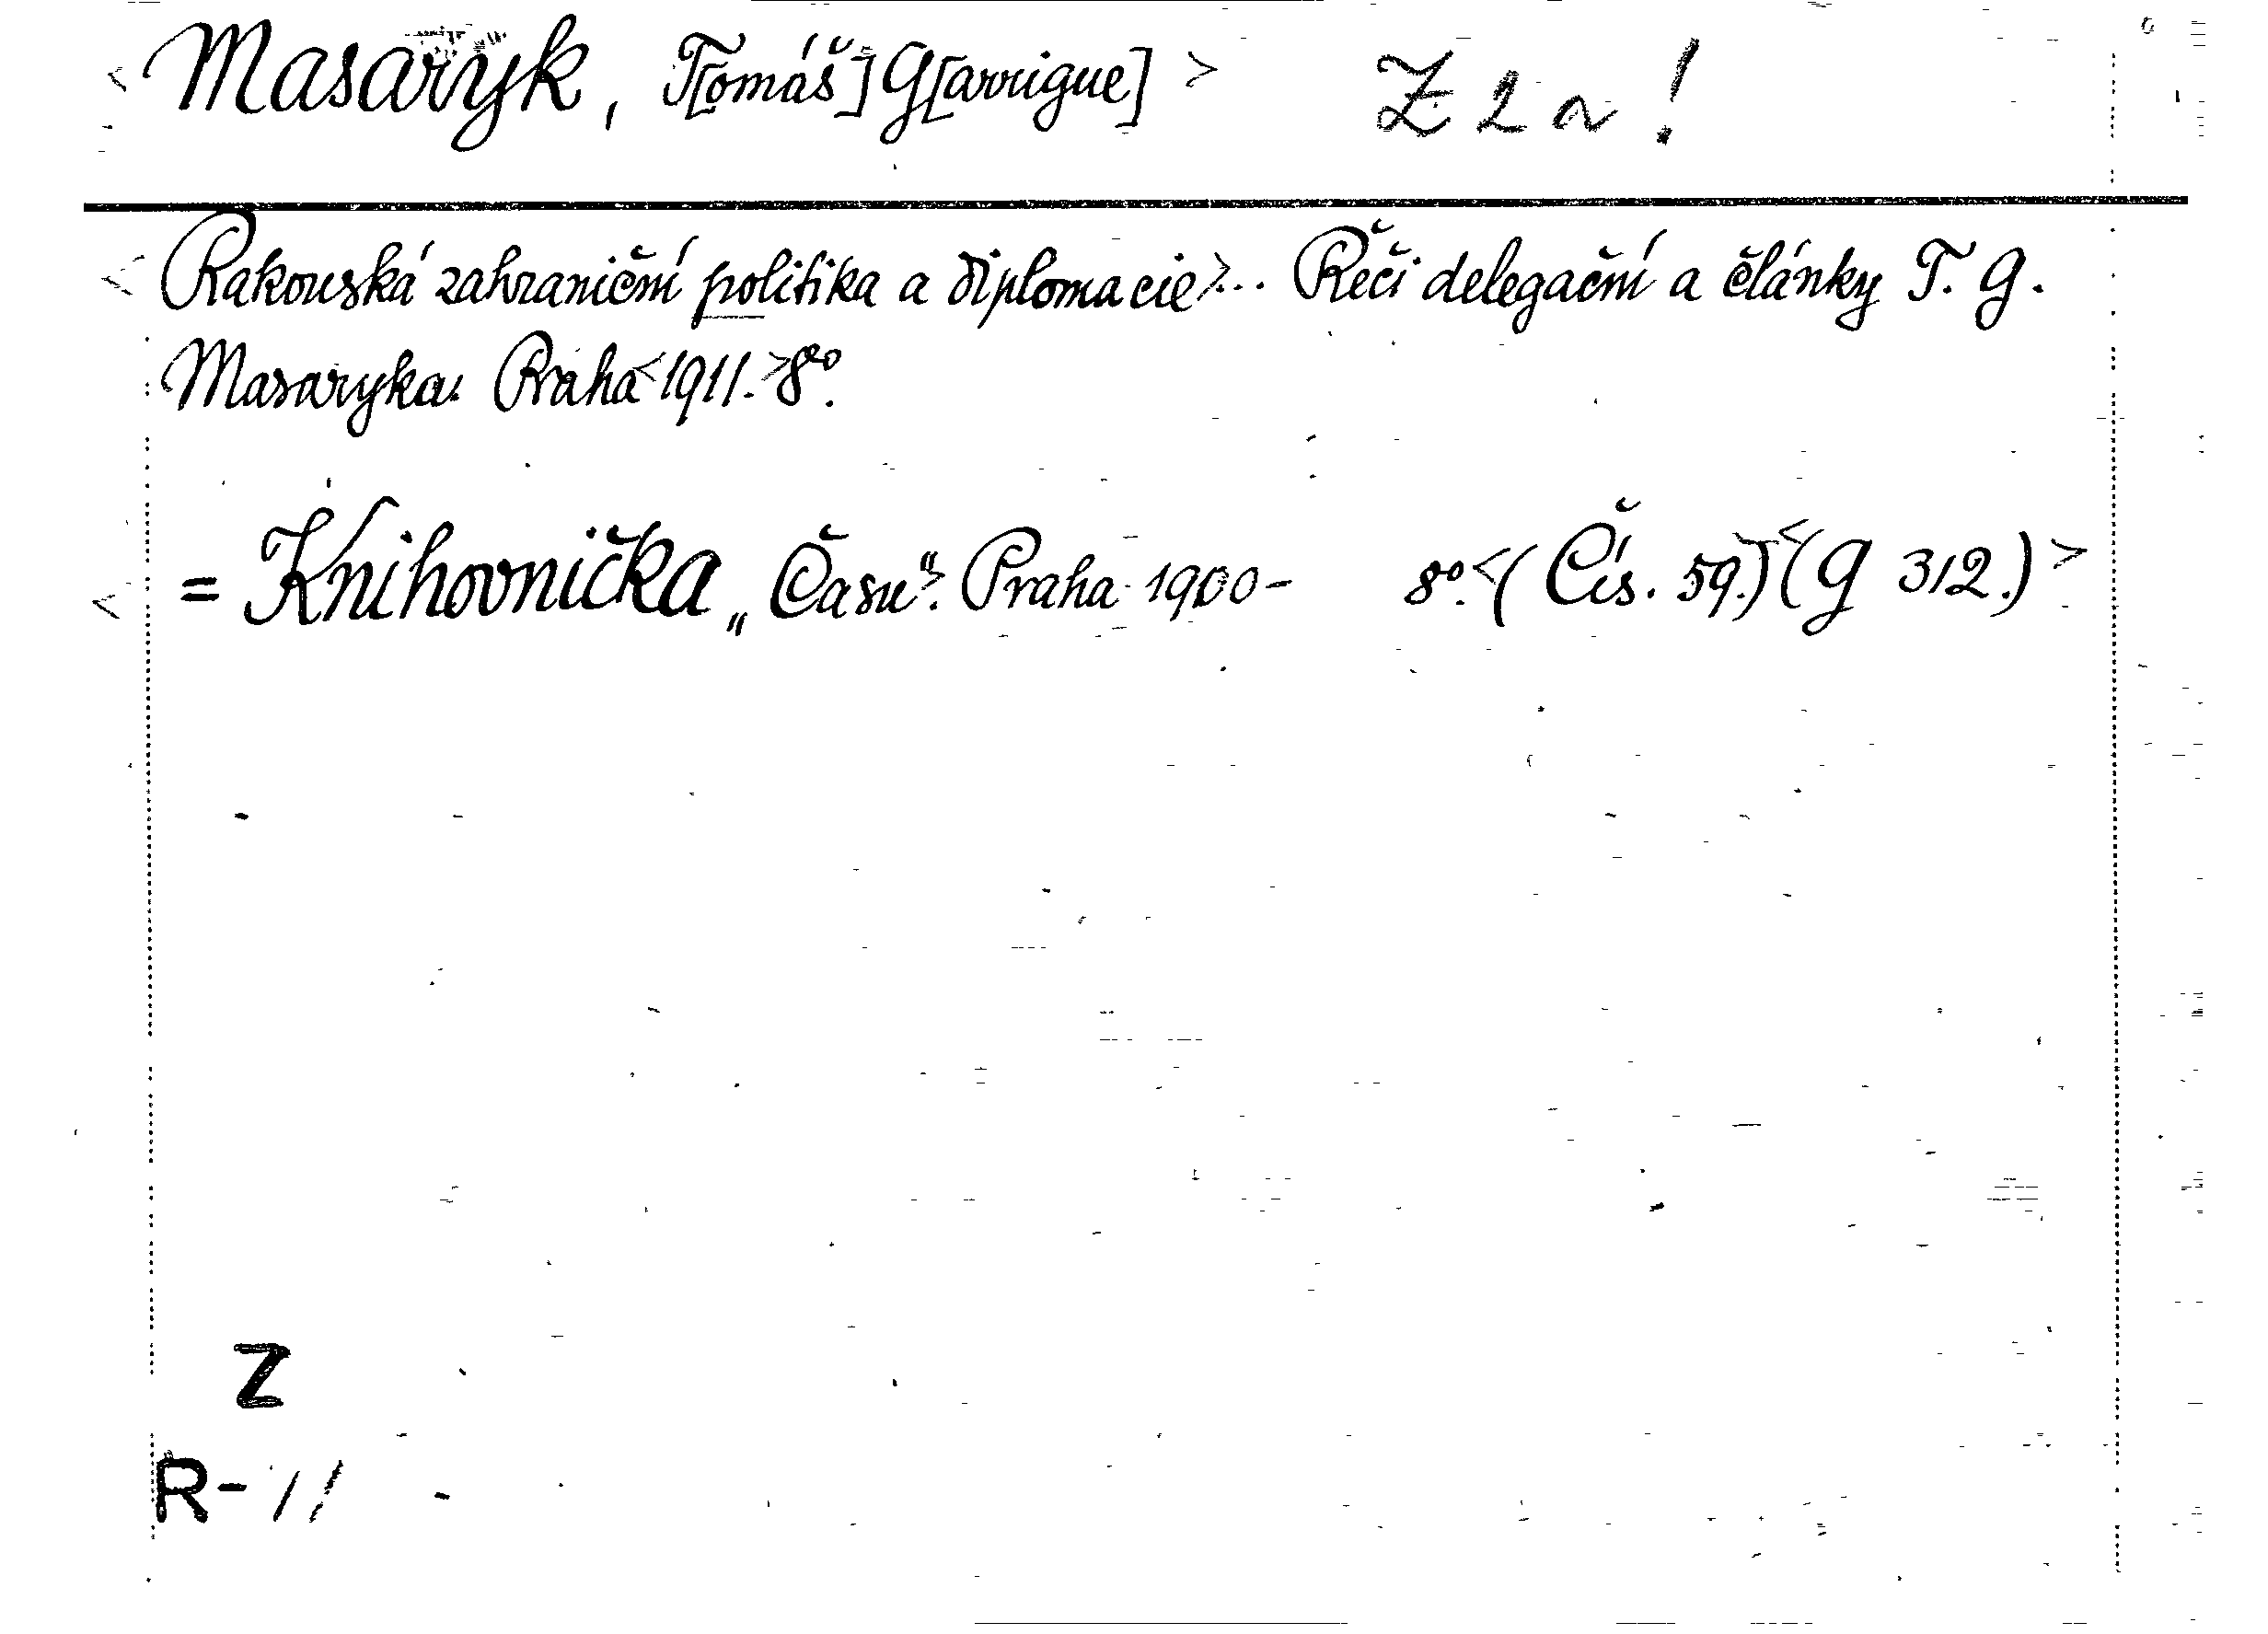 < Masaryk, T[omáš] G[arrigue] > Z 2 a !
< Rakouská zahraniční politika a diplomacie >... Řeči delegační a články T. G.
Masaryka. Praha < 1911. > 8º.
< = Knihovnička „Času“. Praha 1900- 8º. < (Čís. 59.) < (G 312.) >
Z
R-11